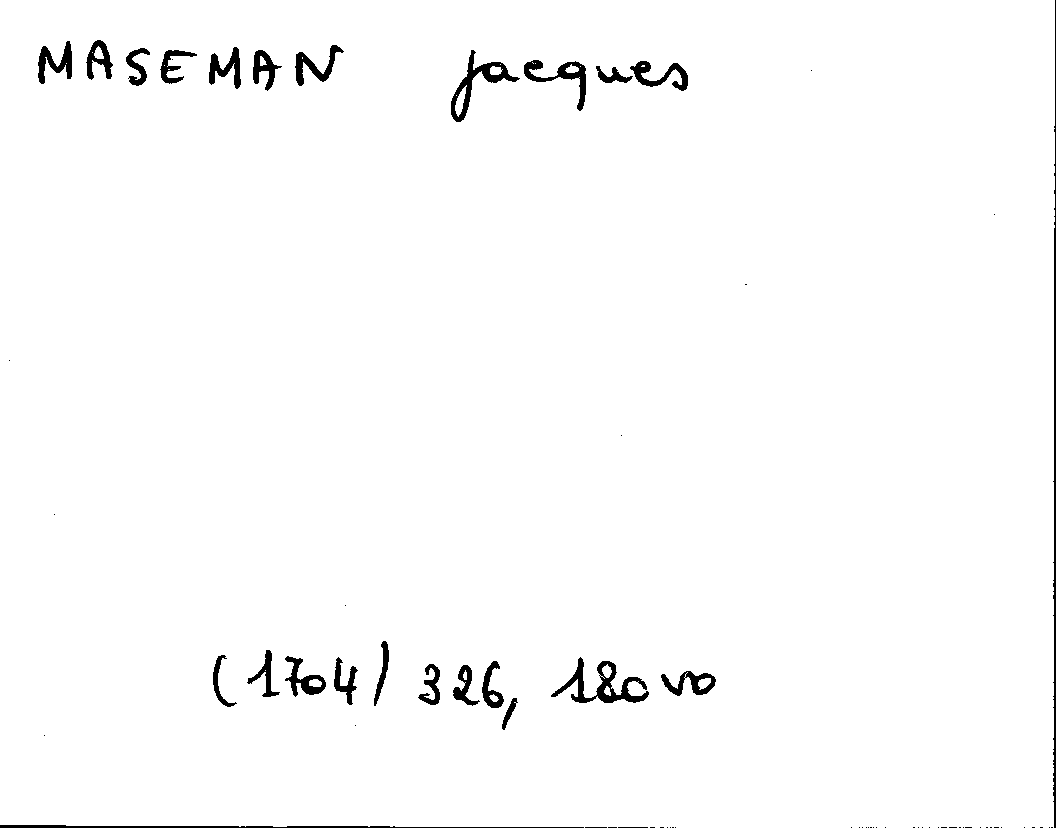 MASEMAN jacques
(1704) 326, 180 vo